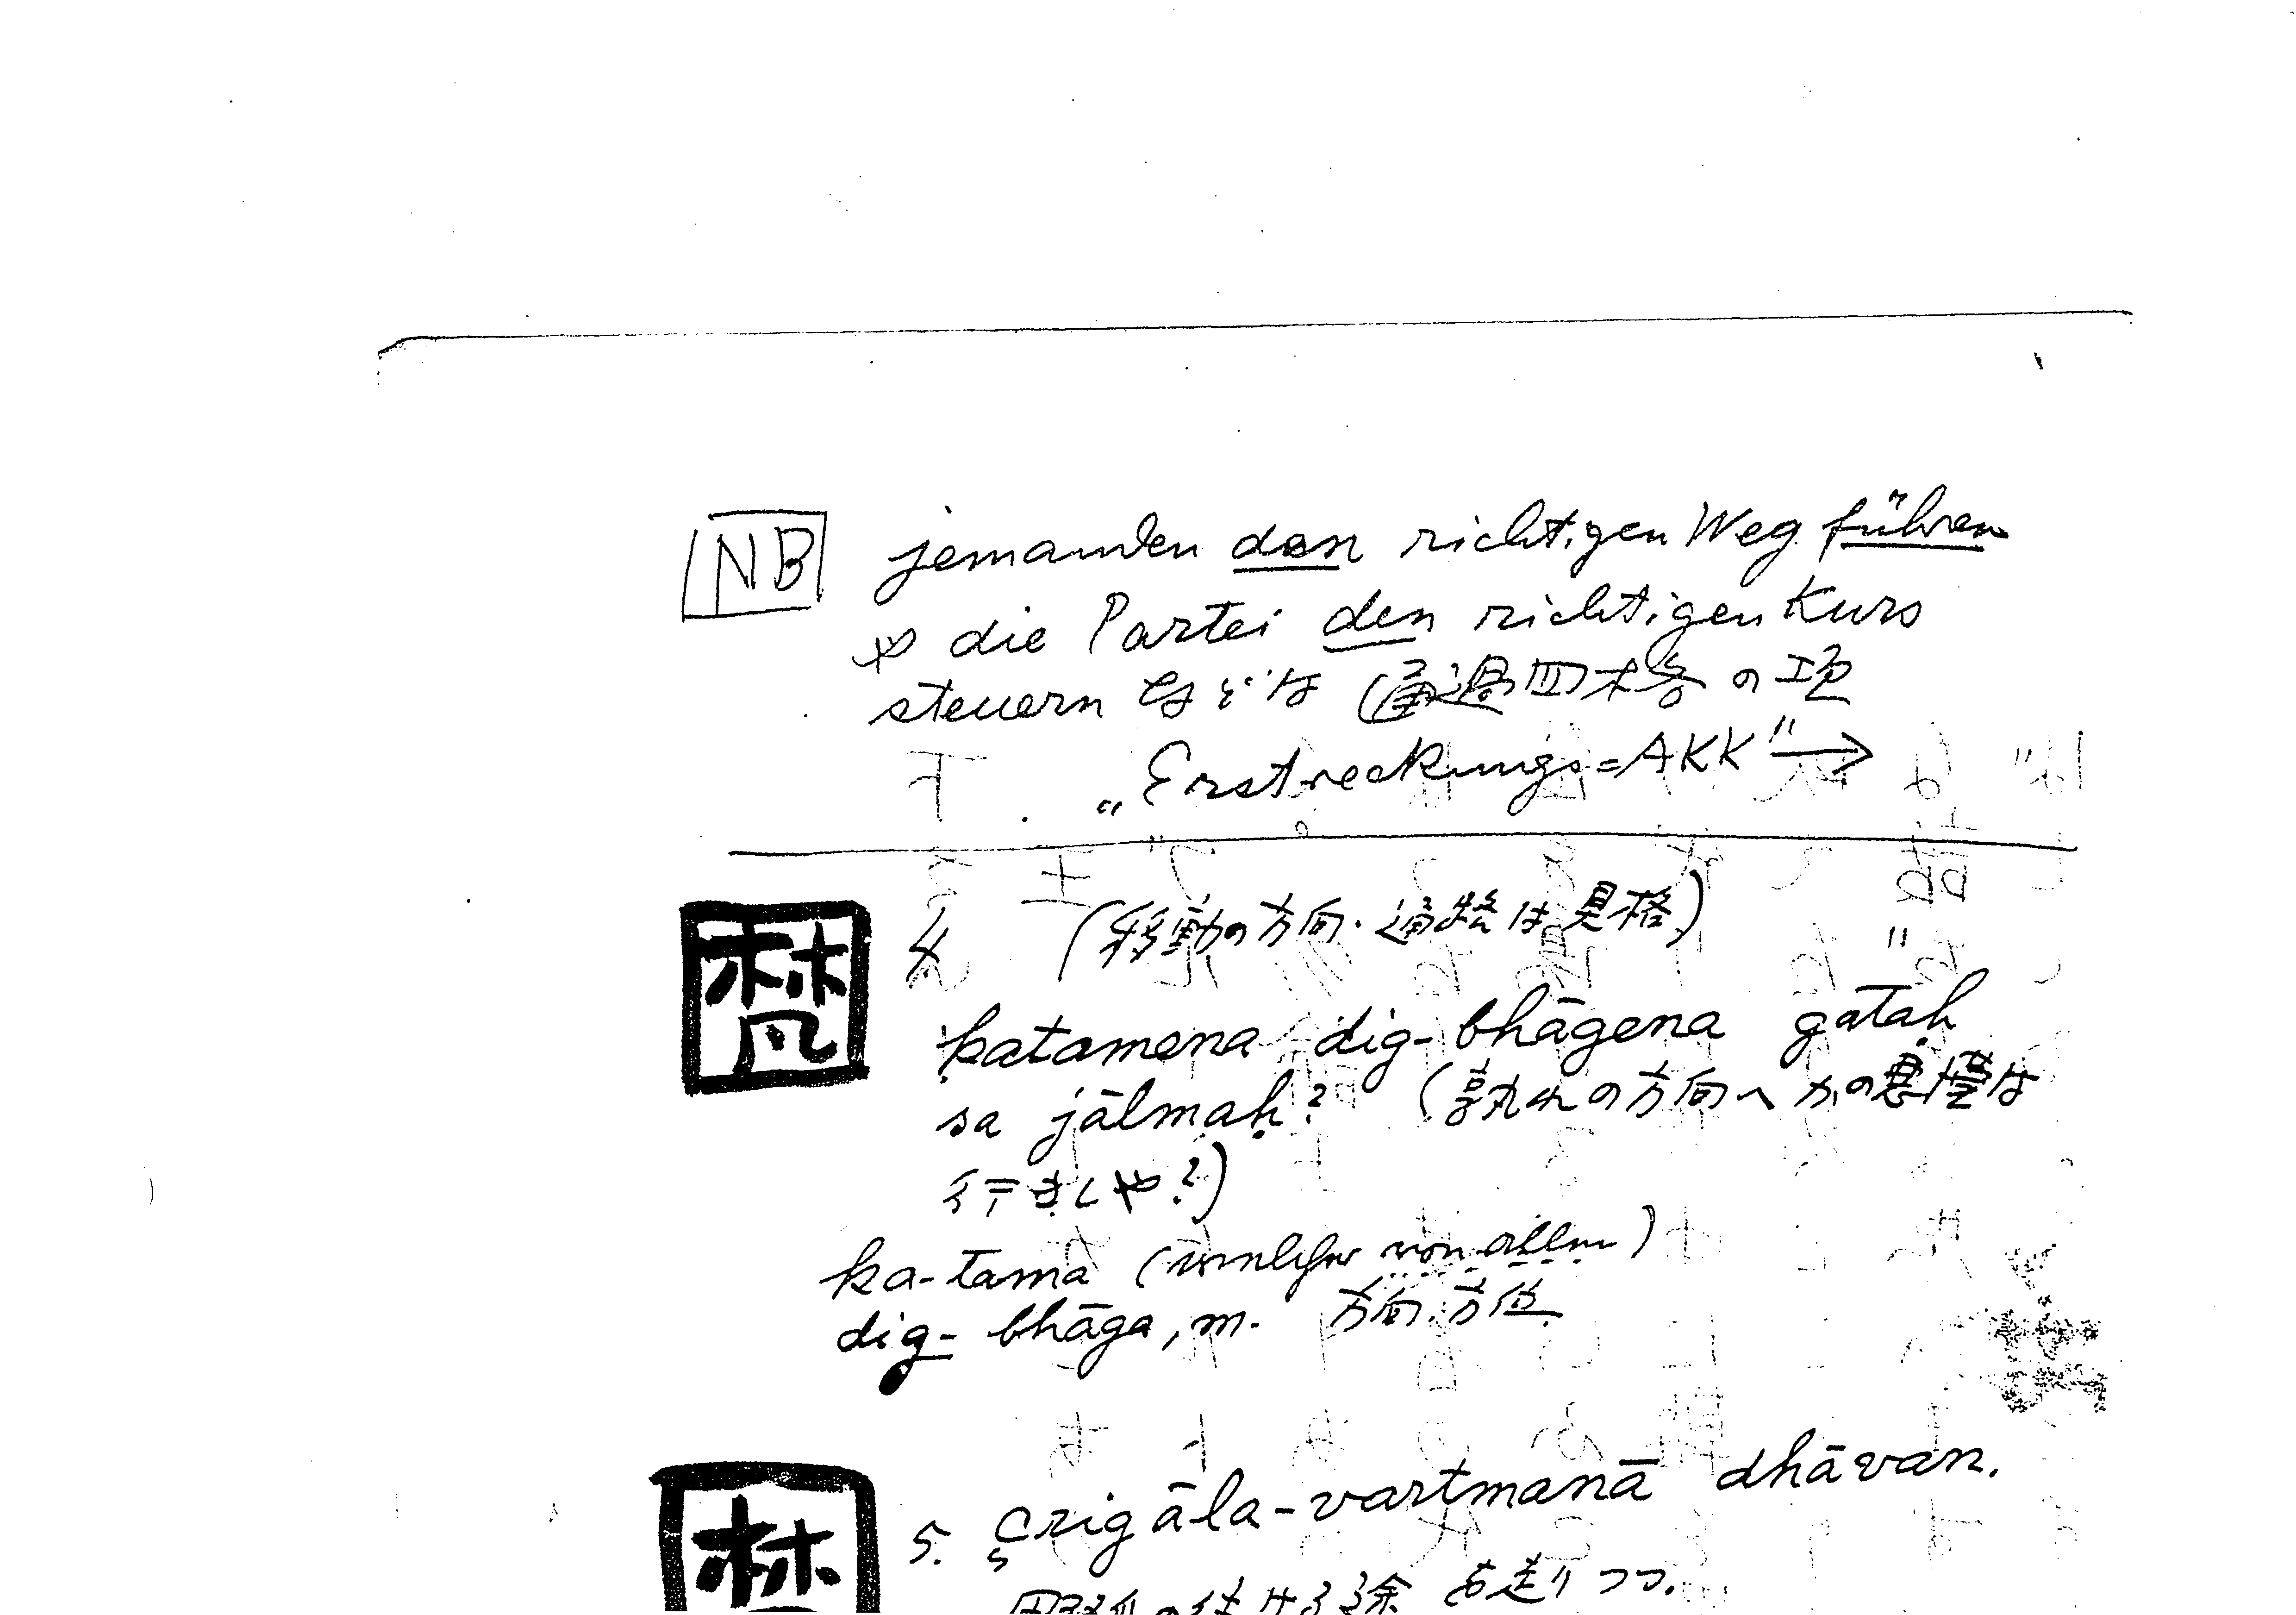 NB jemanden den richtigen Weg führen
や die Partei den richtigen Kurs
steuern などは (通過四格の項
„Erstreckungs=AKK" →
梵 4 (移動の方向・通路は具格)
katamena dig-bhāgena gataḥ
sa jālmaḥ? (孰れの方向へかの悪漢は
行きしや?)
ka-tama (welcher von allen)
dig-bhāga, m. 方向, 方位
5. çrigāla-vartmanā dhāvan.
を走りつつ.